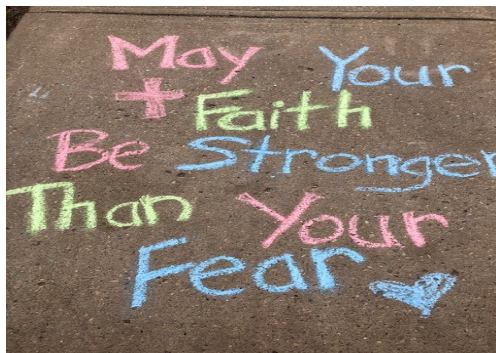 May Your
Faith
Be Stronger
Than Your
Fear